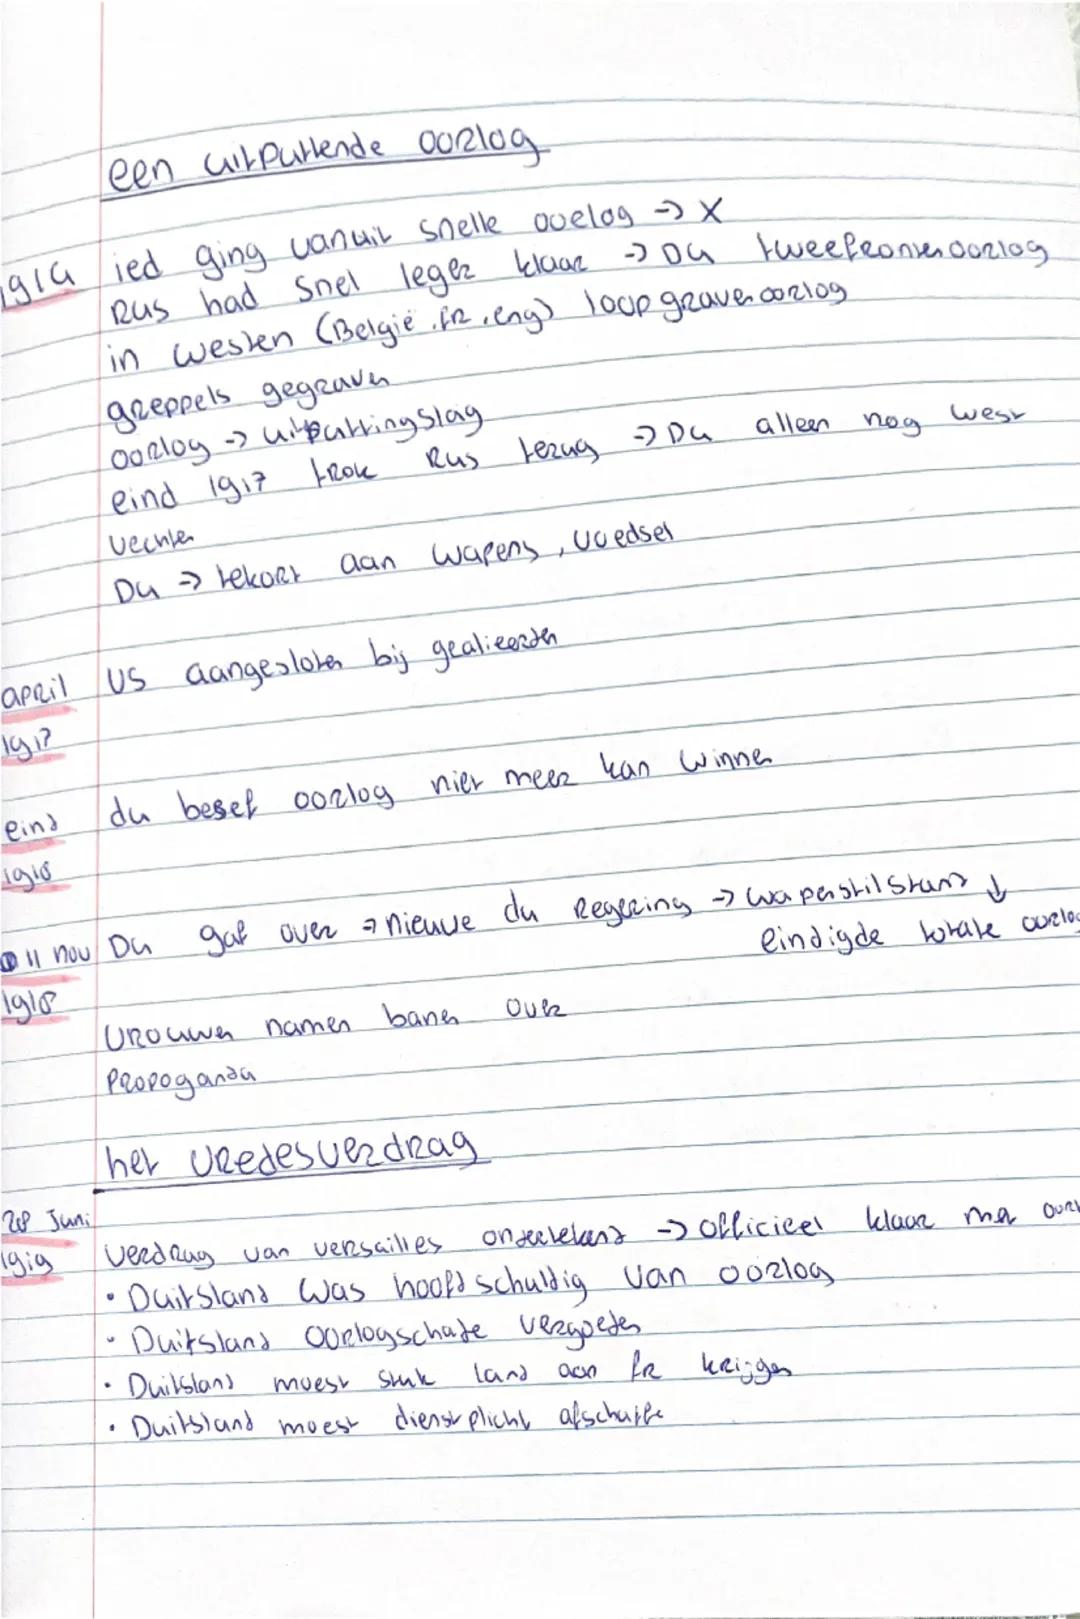 een uitputtende oorlog
1914 ied ging vanuit snelle ooelog -> X
Rus had snel leger klaar -> Du tweefronten oorlog
in westen (België, fr, eng) loopgraven oorlog
greppels gegraven
oorlog -> uitputtingslag
eind 1917 trok Rus terug -> Du alleen nog west
vechten
Du => tekort aan wapens, voedsel
april US aangesloten bij gealieerden
1917
eind du besef oorlog niet meer kan winnen
1918
11 nov Du gaf over -> nieuwe du Regering -> wapenstilstand ↓
1918 eindigde totale oorlog
vrouwen namen banen over
Propoganda
het vredesverdrag
28 Juni
1919 verdrag van versailles ondertekend -> officieel klaar met
• Duitsland was hoofdschuldig van oorlog
• Duitsland oorlogschade vergoeden
• Duitsland moest stuk land aan fr krijgen
• Duitsland moest dienstplicht afschaffe